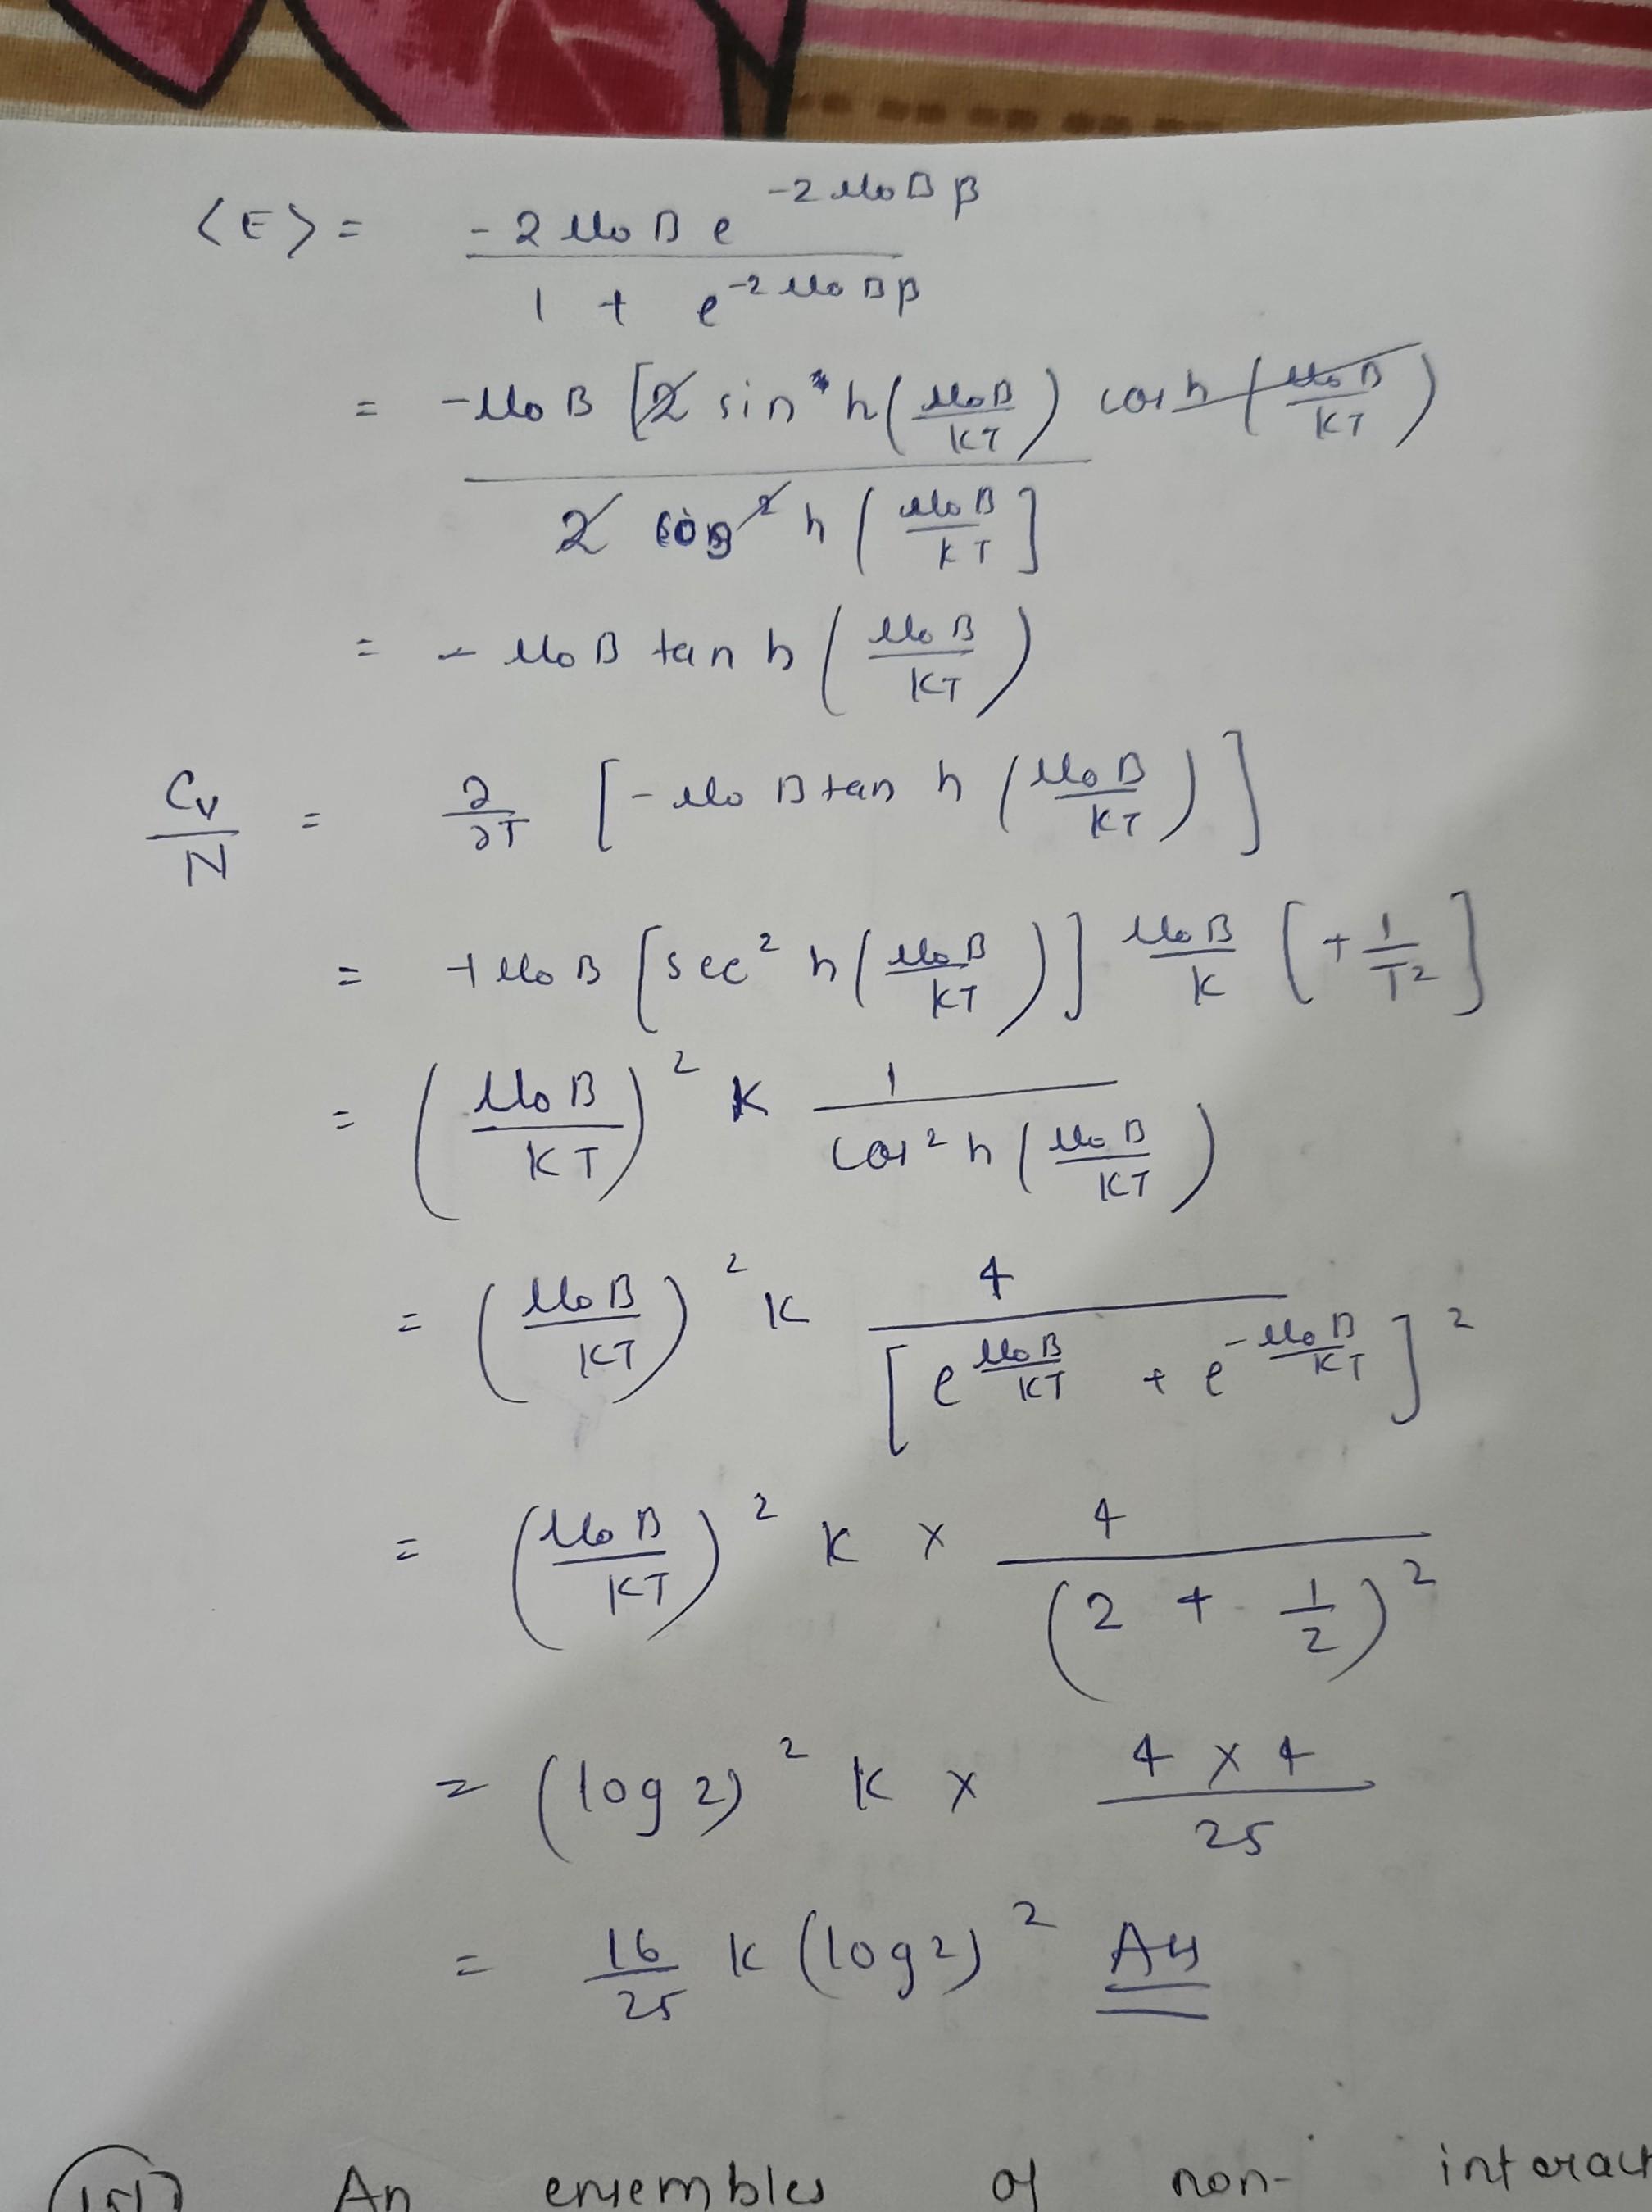 <E> = -2 μ₀ B e^(-2 μ₀ B β) / (1 + e^(-2 μ₀ B β))
= -μ₀ B [2 sin h(μ₀B/KT) cos h(μ₀B/KT) / 2 cos² h(μ₀B/KT]
= - μ₀ B tan h(μ₀B/KT)
Cv/N = ∂/∂T [-μ₀ B tan h(μ₀B/KT)]
= +μ₀ B [sec² h(μ₀B/KT)] μ₀B/K [+1/T²]
= (μ₀B/KT)² K 1 / cos² h(μ₀B/KT)
= (μ₀B/KT)² K 4 / [e^(μ₀B/KT) + e^(-μ₀B/KT)]²
= (μ₀B/KT)² K × 4 / (2 + 1/2)²
= (log 2)² K × 4 × 4 / 25
= 16/25 K (log 2)² Ans
An ensembles of non- interact